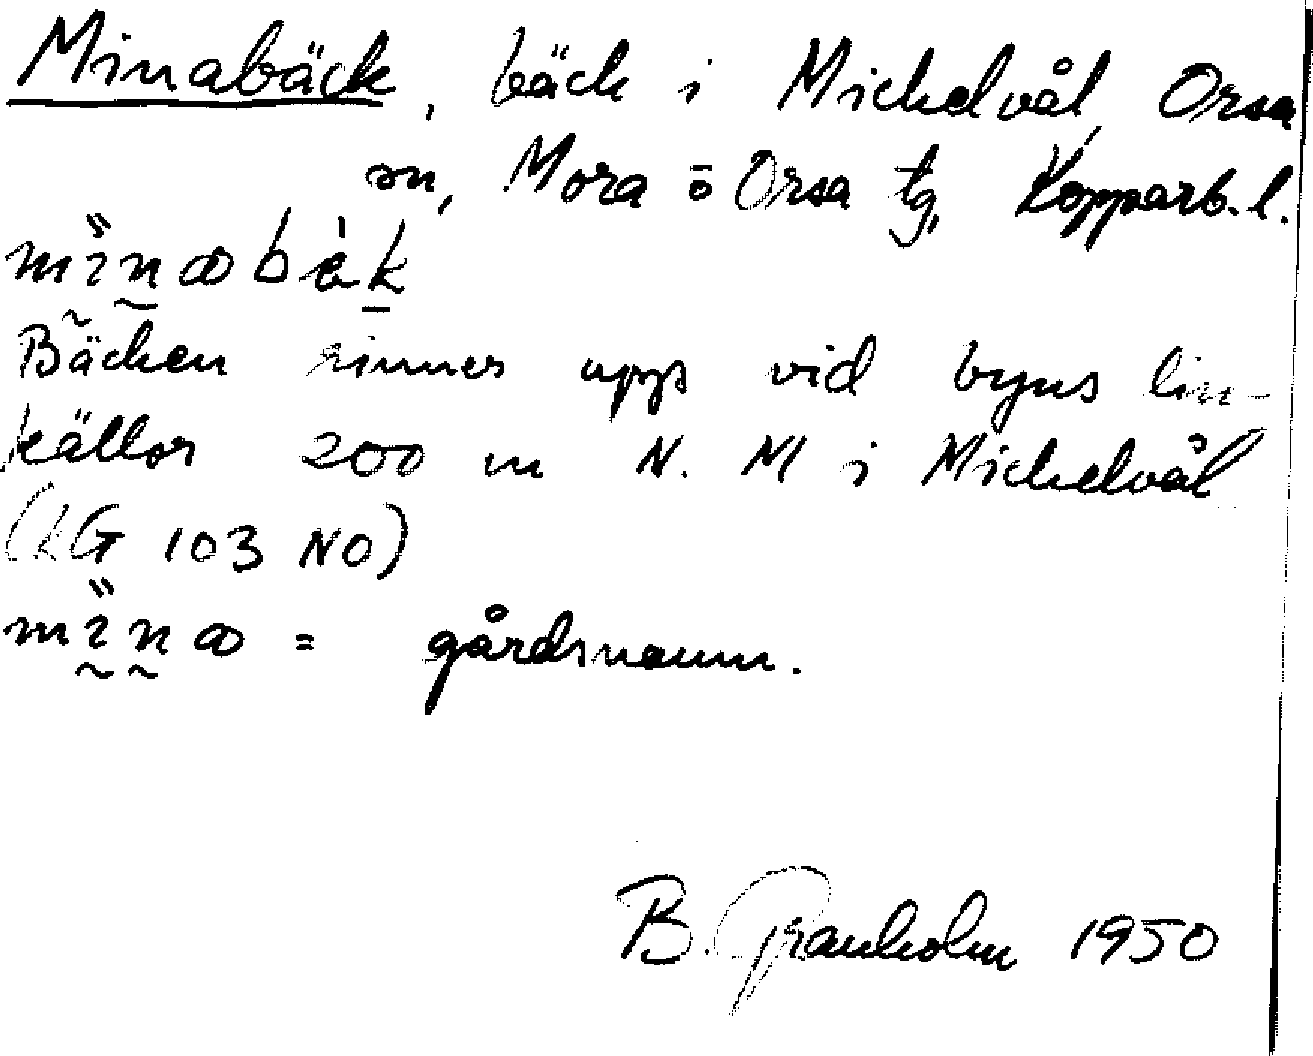 Minabäck, bäck i Mickelvål, Orsa
sn, Mora o Orsa tg, Kopparb. l.
Bäcken rinner upp vid byns lin-
källor 200 m N. M i Mickelvål
(LG 103 NO)
= gårdsnamn.
B. Granholm 1950